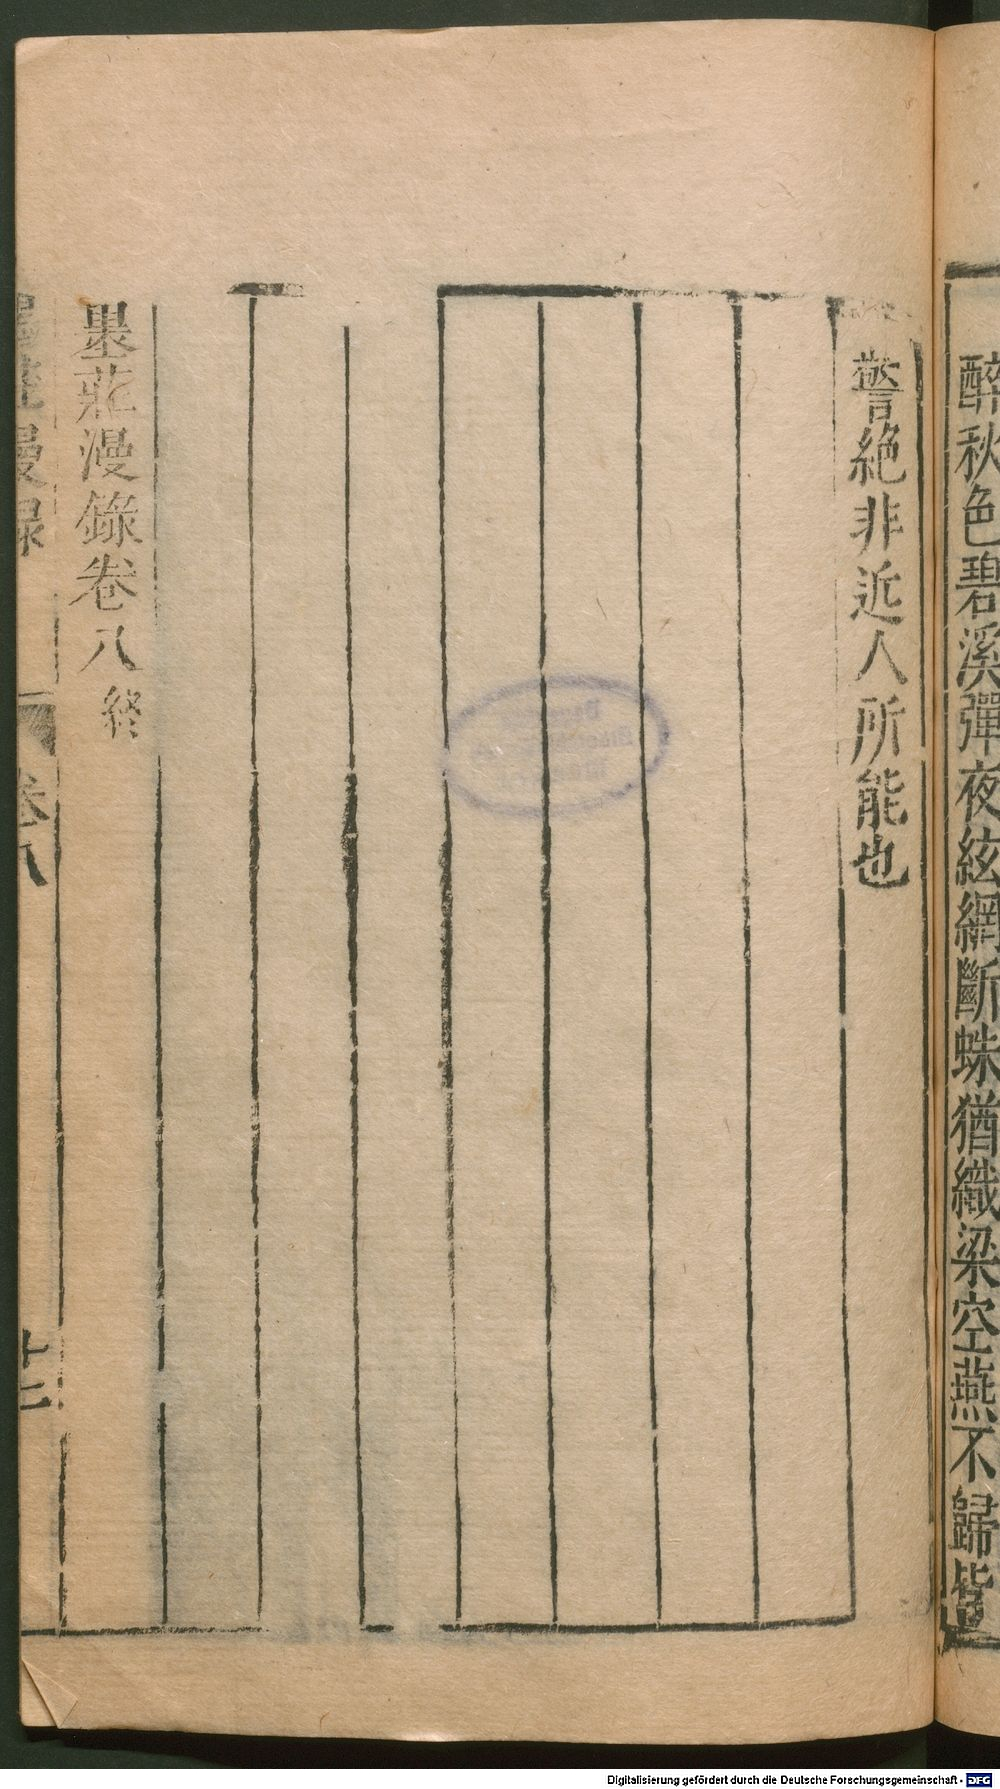 醉秋色碧溪彈夜絃網斷蛛猶織梁空燕不歸皆
警絕非近人所能也
墨莊漫錄卷八終
墨莊漫錄
卷八
十二
Digitalisierung gefördert durch die Deutsche Forschungsgemeinschaft - DFG